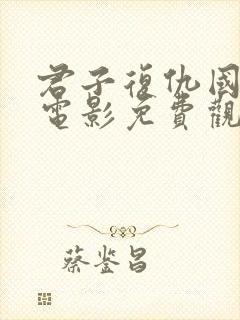 君子復仇國
電影免費觀
蔡鉴昌